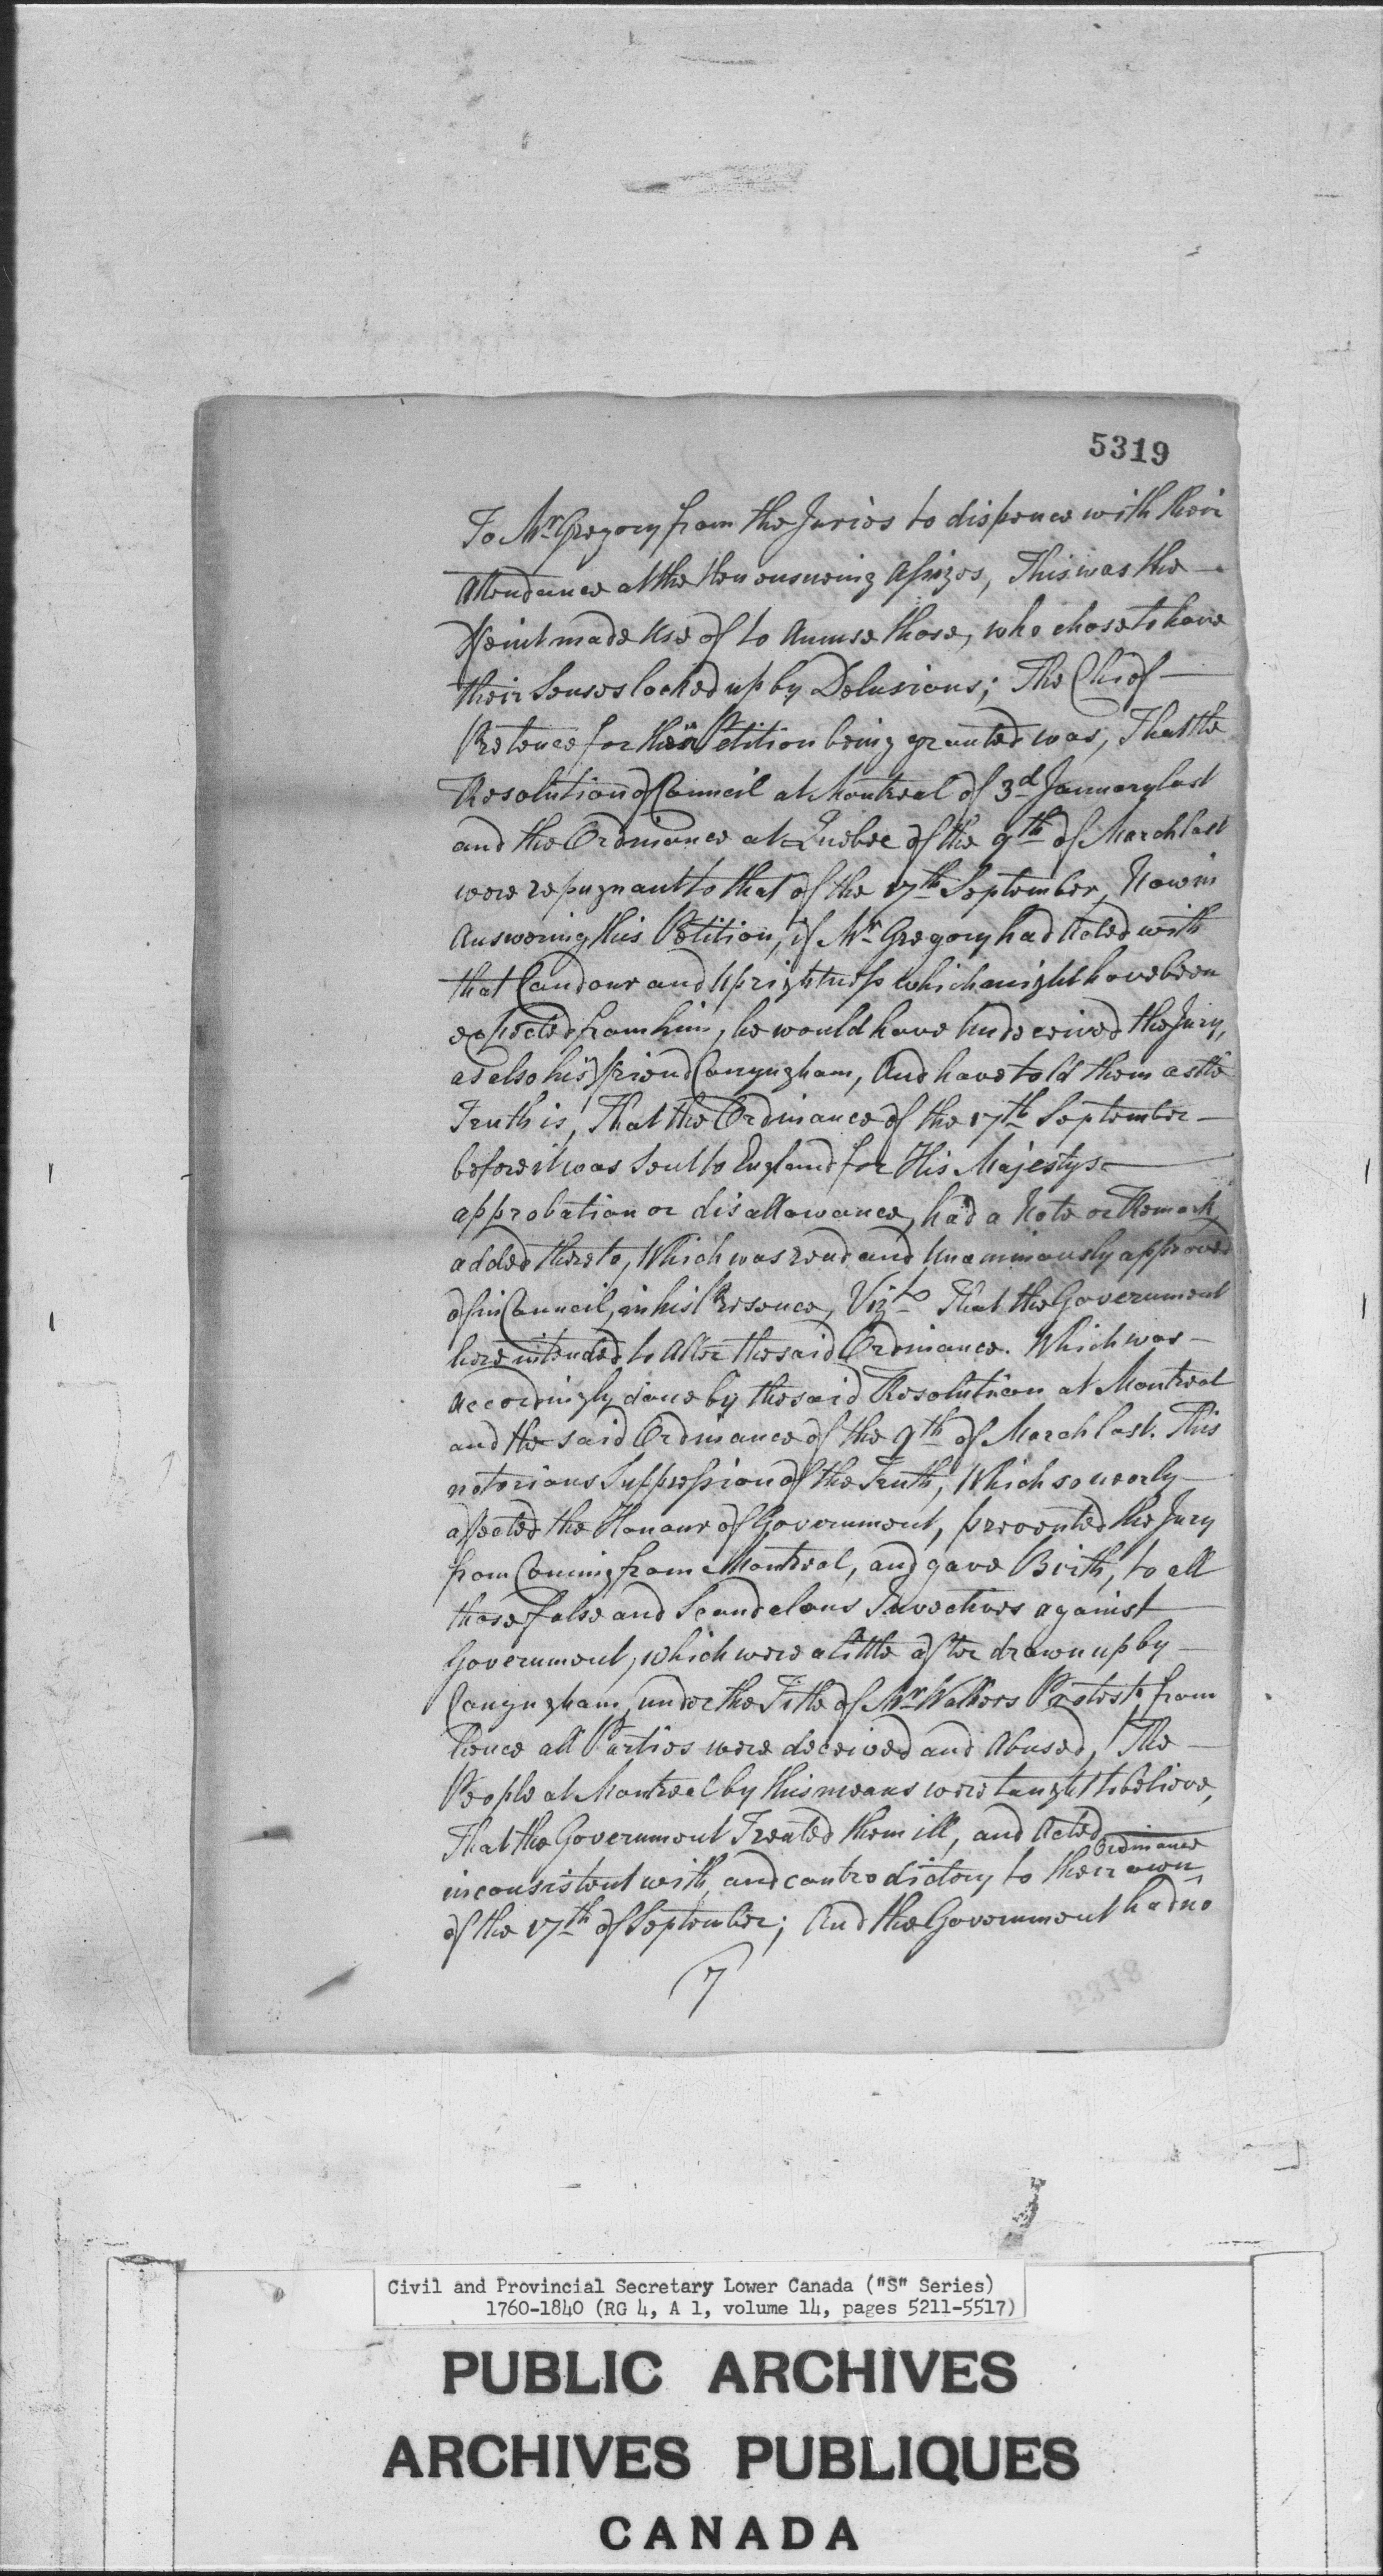 5319
To Mr Gregory from the Juries to dispence with their
Attendance at the then ensueing Assizes, This was the —
Feint made Use of to Amuse those, who chose to have
their Senses locked up by Delusions; The Chief —
Pretence for their Petition being granted was, That the
Resolution of Council at Montreal of 3d January last
and the Ordinance at Quebec of the 9th of March last
were repugnant to that of the 17th September, Now in
Answering this Petition, if Mr Gregory had Acted with
that Candour and Uprightness which might have been
expected from him, he would have Undeceived the Jury,
as also his friend Conyngham, And have told them as the
Truth is, That the Ordinance of the 17th September —
before it was Sent to England for His Majestys —
approbation or disallowance, had a Note or Remark
added thereto, Which was read and Unanimously approved
of in Council, in his Presence, Vizt That the Government
here intended to Alter the said Ordinance. Which was —
Accordingly done by the said Resolution at Montreal
and the said Ordinance of the 9th of March last. This
notorious Suppression of the Truth, Which so nearly —
affected the Honour of Government, prevented the Jury
from Coming from Montreal, and gave Birth, to all
those false and Scandelous Invectives against —
Government, which were a little after drawn up by —
Conyngham, under the Title of Mr Walkers Protest, from
hence all Parties were deceived and Abused, The —
People at Montreal by this means were taught to believe,
That the Government Treated them ill, and Acted —
inconsistent with, and contradictory to their own Ordinance
of the 17th of September; And the Government had no
7
Civil and Provincial Secretary Lower Canada ("S" Series)
1760-1840 (RG 4, A 1, volume 14, pages 5211-5517)
PUBLIC ARCHIVES
ARCHIVES PUBLIQUES
CANADA